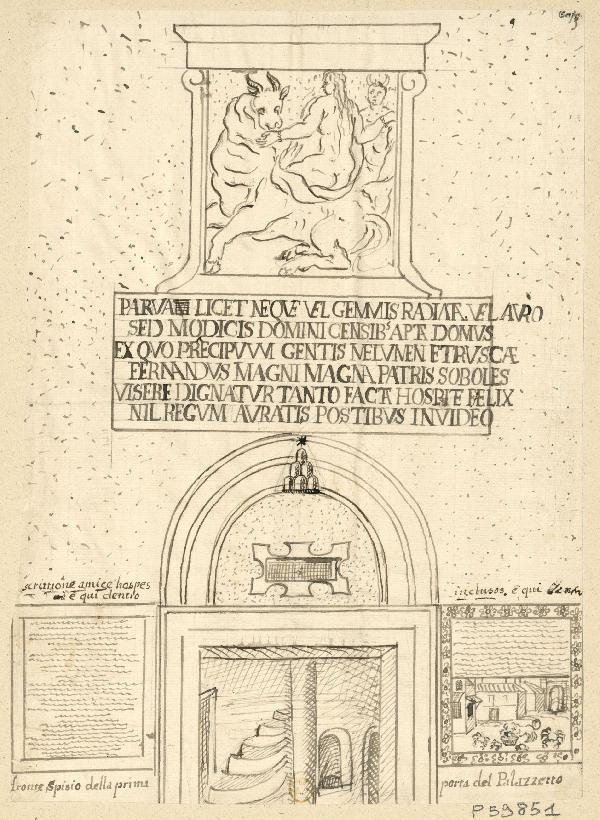 PARVA LICET NEQVE VEL GEMMIS RADIATA VEL AVRO
SED MODICIS DOMINI CENSIBs APTA DOMVS
EX QVO PRECIPVVM GENTIS NELVMEN ETRVSCÆ
FERNANDVS MAGNI MAGNA PATRIS SOBOLES
VISERE DIGNATVR TANTO FACTA HOSPITE FÆLIX
NIL REGVM AVRATIS POSTIBVS INVIDEO
amice hospes
è qui dentro
inclusos. è qui
fronte Spisio della prima
porta del Palazzetto
P59851